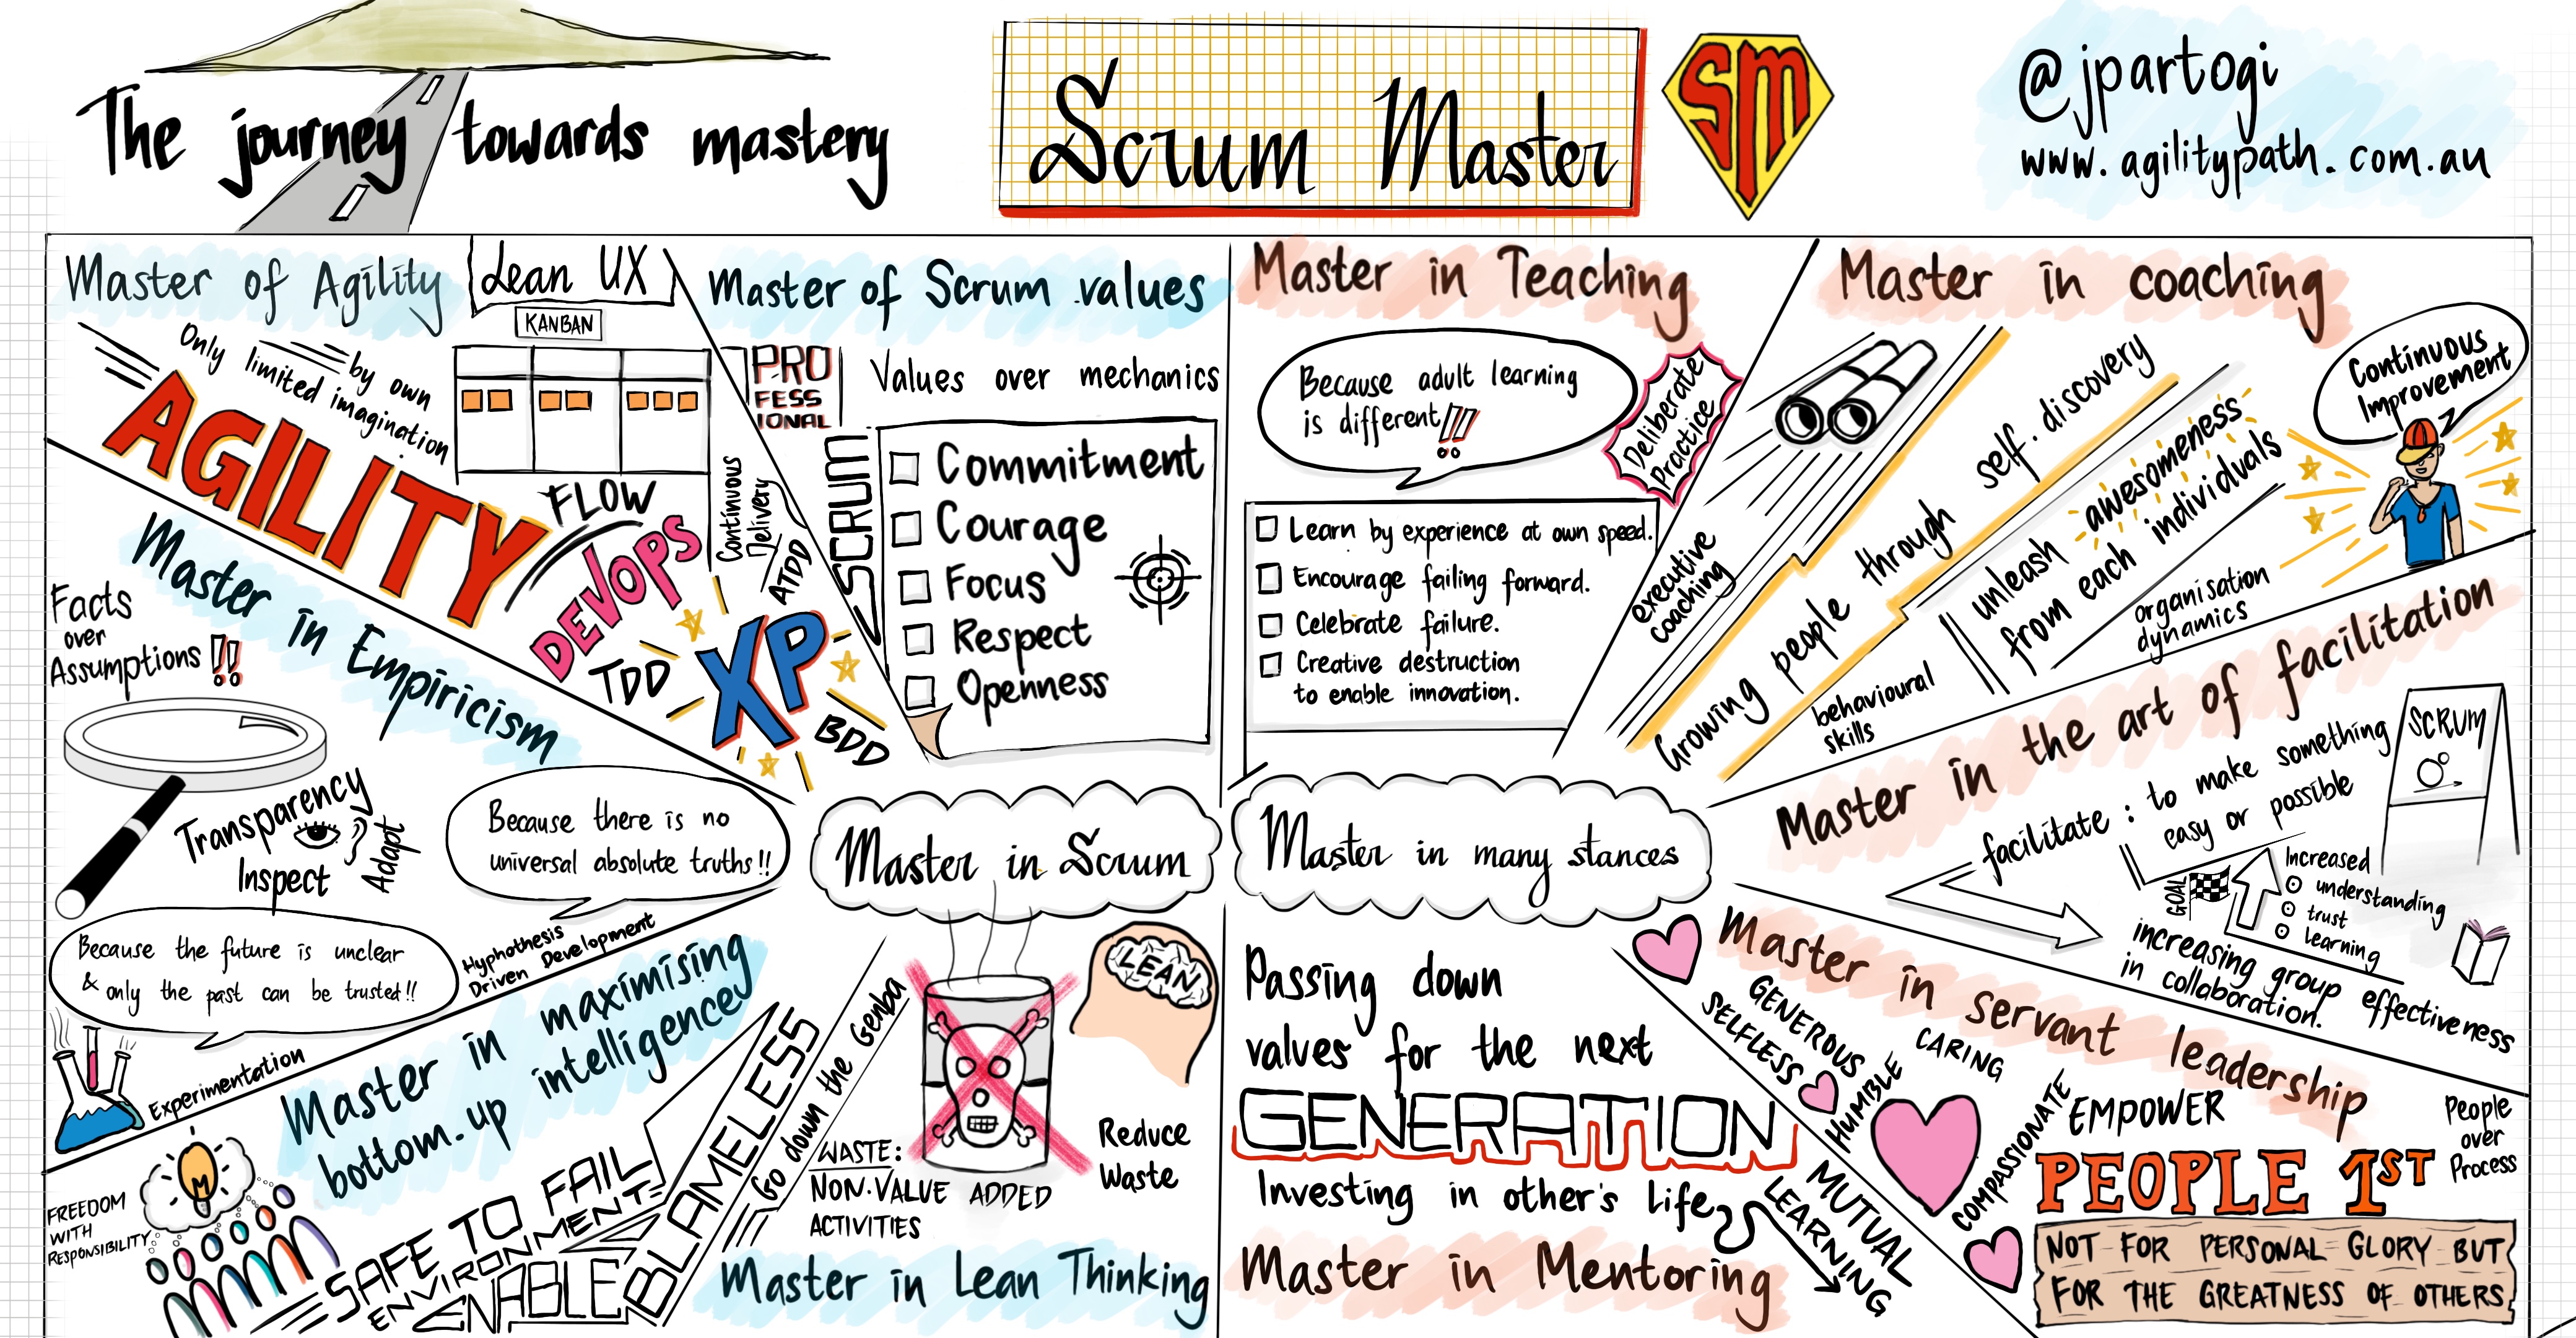 The journey towards mastery
Scrum Master
SM
@jpartogi
www.agilitypath.com.au
Master of Agility
Only limited by own
imagination
AGILITY
Lean UX
KANBAN
FLOW
DEVOPS
Continuous
Delivery
ATDD
TDD
XP
BDD
Master of Scrum values
PRO
FESS
IONAL
SCRUM
Values over mechanics
Commitment
Courage
Focus
Respect
Openness
Master in Empiricism
Facts
over
Assumptions!!
Transparency
Inspect
Adapt
Because there is no
universal absolute truths!!
Because the future is unclear
& only the past can be trusted!!
Hyphothesis
Driven Development
Experimentation
Master in Scrum
Master in maximising
bottom-up intelligence
FREEDOM
WITH
RESPONSIBILITY
M
SAFE TO FAIL
ENVIRONMENT
ENABLE
BLAMELESS
Go down the Genba
LEAN
WASTE:
NON-VALUE ADDED
ACTIVITIES
Reduce
Waste
Master in Lean Thinking
Master in Teaching
Because adult learning
is different!!
Deliberate
Practice
Learn by experience at own speed.
Encourage failing forward.
Celebrate failure.
Creative destruction
to enable innovation.
Master in coaching
executive
coaching
Growing people through self-discovery
behavioural
skills
unleash awesomeness
from each individuals
organisation
dynamics
Continuous
Improvement
Master in many stances
Master in the art of facilitation
facilitate: to make something
easy or possible
SCRUM
GOAL
Increased
understanding
trust
learning
increasing group effectiveness
in collaboration.
Master in servant leadership
GENEROUS
SELFLESS
HUMBLE
CARING
COMPASSIONATE
EMPOWER
People
over
Process
PEOPLE 1ST
NOT FOR PERSONAL GLORY BUT
FOR THE GREATNESS OF OTHERS
Passing down
values for the next
GENERATION
Investing in other's life
MUTUAL
LEARNING
Master in Mentoring